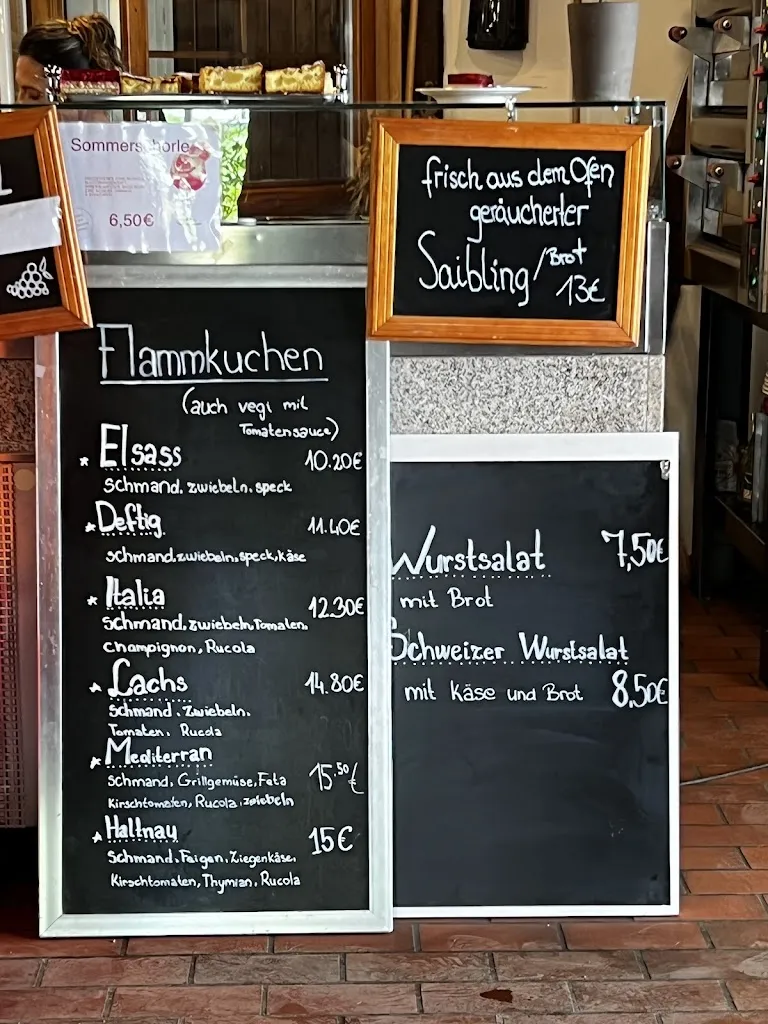 Sommerschorle
6,50€
frisch aus dem Ofen
geräucherter
Saibling/Brot
13€
Flammkuchen
(auch vegi mit
Tomatensauce)
* Elsass 10.20€
Schmand. zwiebeln. speck
* Deftig 11.40€
schmand.zwiebeln.speck,käse
* Italia 12.30€
Schmand.zwiebeln.Tomaten.
Champignon, Rucola
* Lachs 14.80€
Schmand. Zwiebeln.
Tomaten. Rucola
* Mediterran
Schmand, Grillgemüse, Feta 15.50€
Kirschtomaten, Rucola, zwiebeln
* Hallnau 15€
Schmand. Feigen. Ziegenkäse.
Kirschtomaten, Thymian. Rucola
Wurstsalat 7,50€
mit Brot
Schweizer Wurstsalat
mit Käse und Brot 8,50€